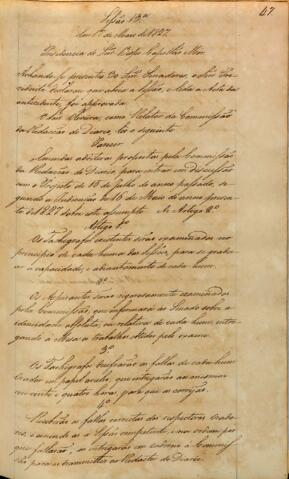 47
Sessão 13ª
em 1º de Maio de 1827.
Presidencia do Snr. Bispo Capellão Mór
Achando-se presentes Srs. Senadores, o Snr. Pre-
sidente declarou que abria a Sessão, e lida a Acta da
antecedente, foi approvada.
O Snr. como Relator da Commissão
da Redacção do Diario, leo o seguinte
Parecer
Emendas additivas propostas pela Commissão
da Redacção do Diario para entrar em discussão
com o Projecto de 16 de Julho do anno passado, se-
gundo a de 16 de Maio do anno
de 1827 sobre este assumpto. Ao Artigo 2º
Artigo 1º
Os Tachigrafos serão examinados no
principio de cada huma das Sessões para se
a capacidade, e adiantamento de cada hum.
2º
Os Aspirantes serão rigorosamente examinados
pela Commissão, que informará ao Senado sobre a
idoneidade absoluta, ou relativa de cada hum, entre-
gando á Mesa os trabalhos obtidos pelo exame.
3º
Os Tachigrafos as fallas de cada hum
Orador em papel que entregarão ao mesmo
em vinte e quatro horas, para que as corrija.
4º
as fallas correctas dos respectivos Orado-
res, e a Sessão competente, na ordem por
que fallarão, as entregarão em caderno á Commis-
são para as transmittir ao Redactor do Diario.